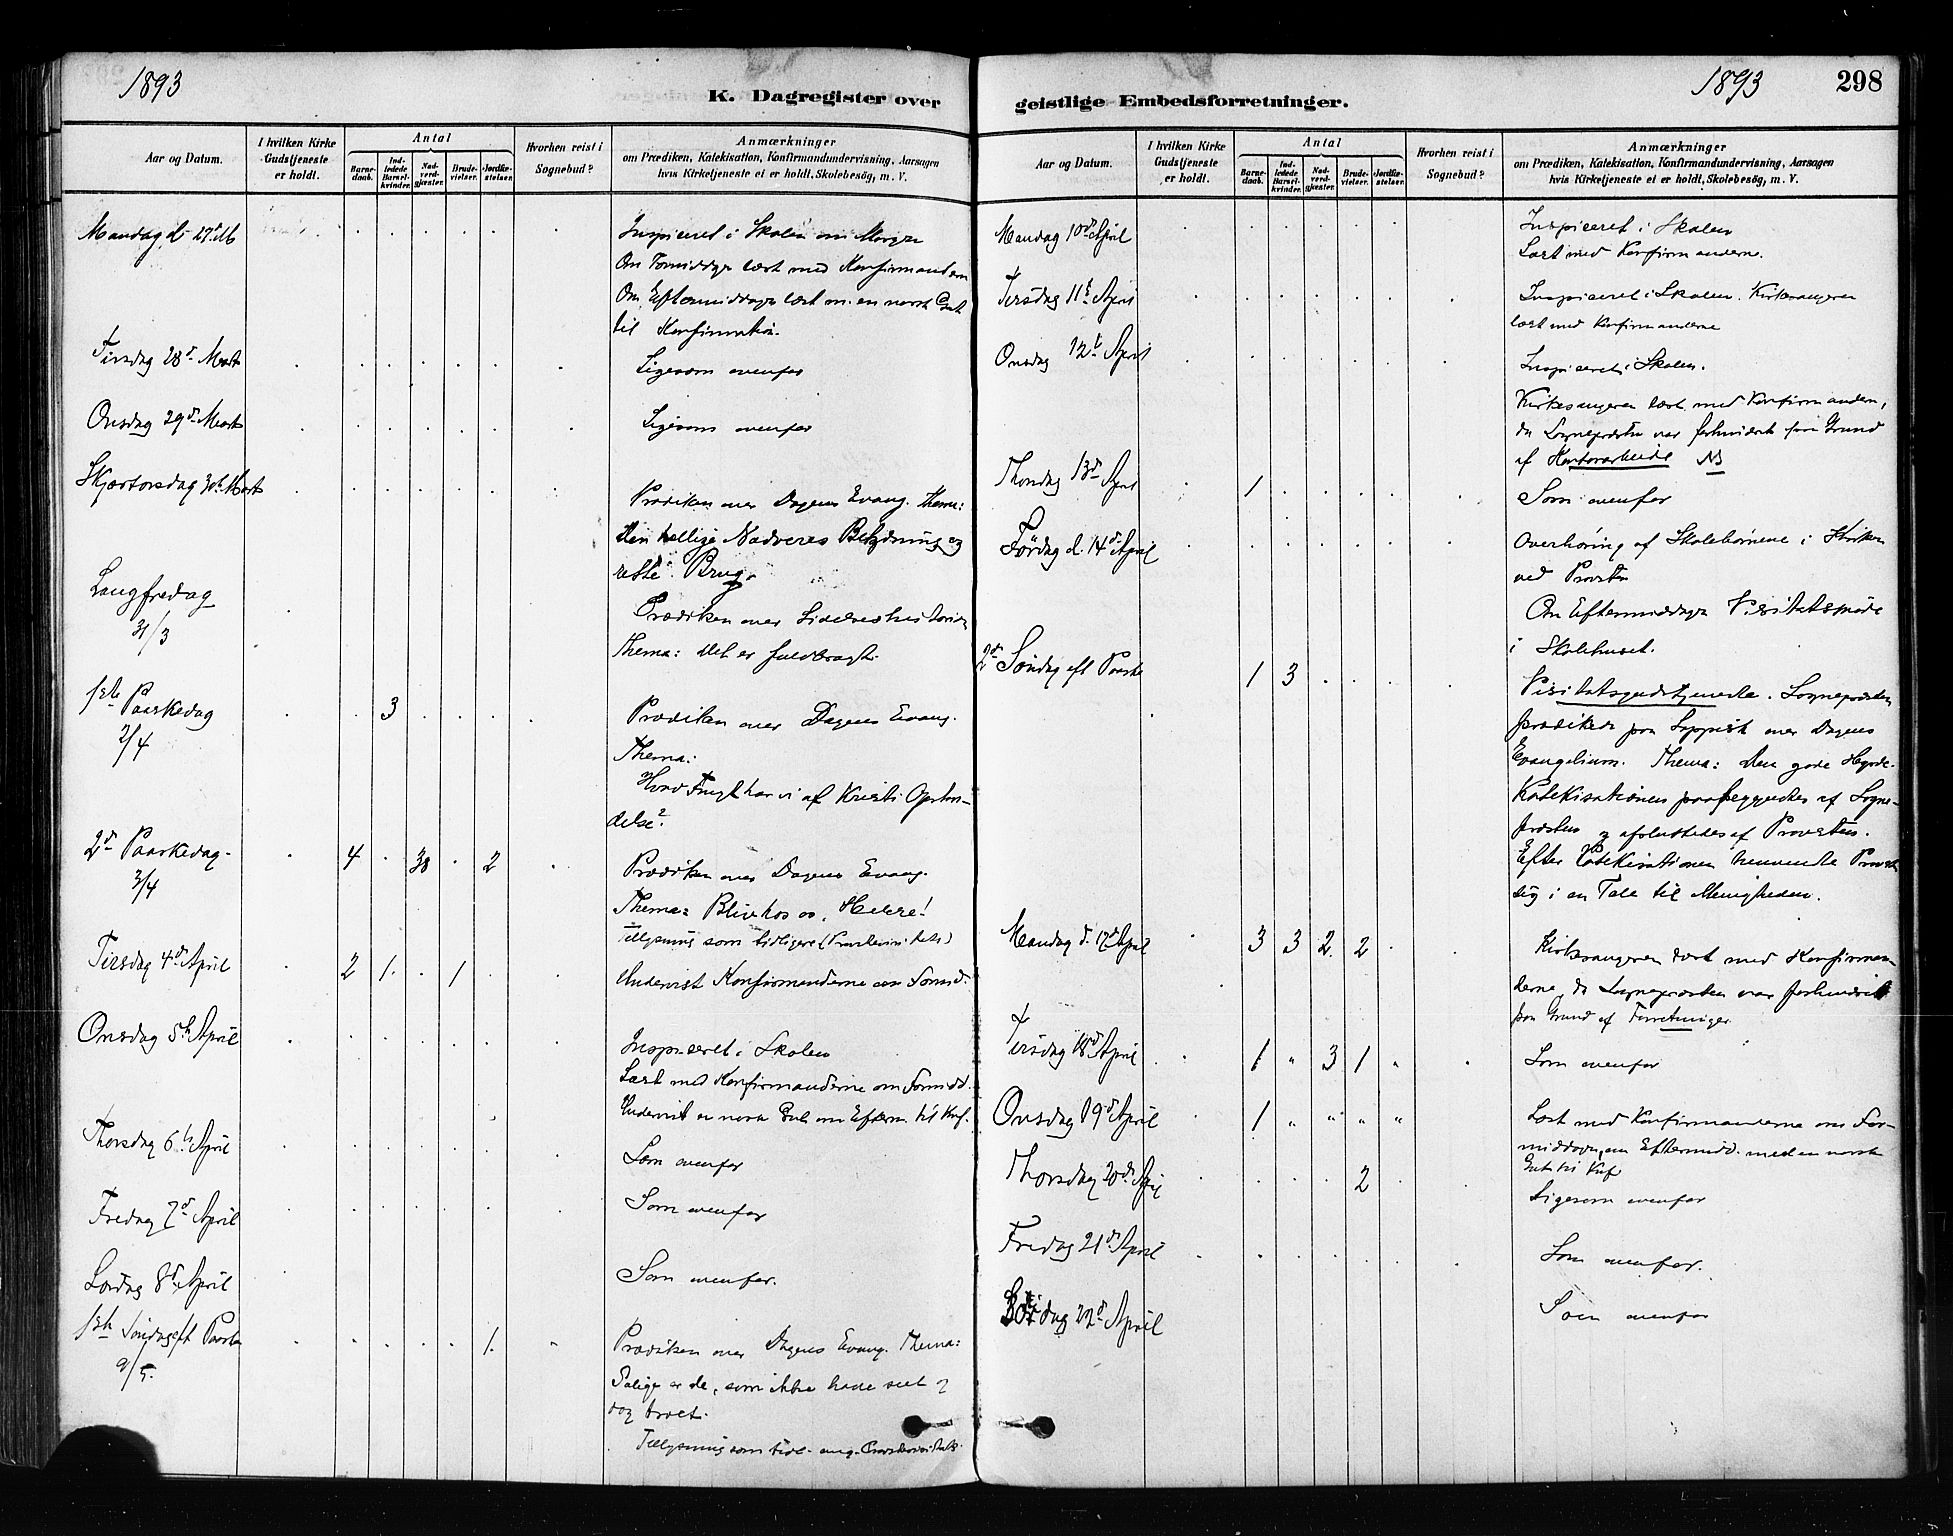 1893
K. Dagregister over
Aar og Datum.
I hvilken Kirke Gudstjeneste er holdt.
Antal
Barnedaab.
Indledede Barselkvinder.
Nadverdgjester.
Brudevielser.
Jordfæstelser.
Hvorhen reist i Sognebud?
Anmærkninger
om Prædiken, Katekisation, Konfirmandundervisning, Aarsagen
hvis Kirketjeneste ei er holdt, Skolebesøg, m. V.
Mandag d. 27d M
Inspiceret i Skolen om Morgen
Om Formiddagen læst med Konfirmanderne
Om Eftermiddagen læst m. en norsk Gut
til Konfirmation.
Tirsdag 28d Marts
Ligesom ovenfor
Onsdag 29d Marts
Ligesom ovenfor
Skjærtorsdag 30te Marts
Prædiken over Dagens Evang. Thema:
Den hellige Nadveres Betydning og
rette Brug.
Langfredag
31/3
Prædiken over Lidelseshistorien
Thema: Det er fuldbragt.
1ste Paaskedag
2/4
3
Prædiken over Dagens Evang.
Thema:
Hvad Frugt har vi af Kristi Opstan-
delse?
2d Paaskedag
3/4
4 38 2
Prædiken over Dagens Evang.
Thema: Bliv hos os, Herre!
Tillysning som tidligere (Provstevisitats)
Tirsdag 4d April
2 1 1
Undervist Konfirmanderne om Formd.
Onsdag 5te April
Inspiseret i Skolen
Læst med Konfirmanderne om Formidd.
Undervist en norsk Gut om Efterm. til Konf.
Thorsdag 6te April
Som ovenfor
Fredag 7d April
Som ovenfor
Lørdag 8d April
Som ovenfor.
1ste Søndag eft Paaske
9/5.
1.
Prædiken over Dagens Evang. Thema:
Salige er de, som ikke have seet og
dog troet.
Tillysning som tidl. ang. Provstevisitats.
1893
298
geistlige Embedsforretninger.
Aar og Datum.
I hvilken Kirke Gudstjeneste er holdt.
Antal
Barnedaab.
Indledede Barselkvinder.
Nadverdgjester.
Brudevielser.
Jordfæstelser.
Hvorhen reist i Sognebud?
Anmærkninger
om Prædiken, Katekisation, Konfirmandundervisning, Aarsagen
hvis Kirketjeneste ei er holdt, Skolebesøg, m. V.
Mandag 10d April
Inspiceret i Skolen
Læst med Konfirmanderne.
Tirsdag 11te April
Inspiceret i Skolen. Kirkesangeren
læst med Konfirmanderne
Onsdag 12te April
Inspiceret i Skolen.
Kirkesangeren læst med Konfirmandern,
da Sognepræsten var forhindret paa Grund
af Kontorarbeide NB
Thorsdag 13d April
1
Som ovenfor
Fördag d. 14d April
Overhøring af Skolebørnene i Kirken
ved Provsten
Om Eftermiddagen Visitatsmøde
i Skolehuset.
2d Søndag eft Paaske
1 3
Visitatsgudstjeneste. Sognepræsten
prædikede paa Lappisk over Dagens
Evangelium. Thema: Den gode Hyrde.
Katekisationen paabegyndtes af Sogne-
præsten og afsluttedes af Provsten.
Efter Katekisationen henvendte Provsten
sig i en Tale til Menigheden.
Mandag d. 17d April
3 3 2 2
Kirkesangeren læst med Konfirman-
derne, da Sognepræsten var forhindret
paa Grund af Forretninger
Tirsdag 18d April
1 " 3 1 "
Som ovenfor
Onsdag 19d April
1 " " " "
Læst med Konfirmanderne om For-
middagen, om Eftermidd. med en norsk
Gut til Knf
Thorsdag 20de
2
Ligesom ovenfor
Fredag 21d April
Som ovenfor.
Lördag 22d April
Som ovenfor